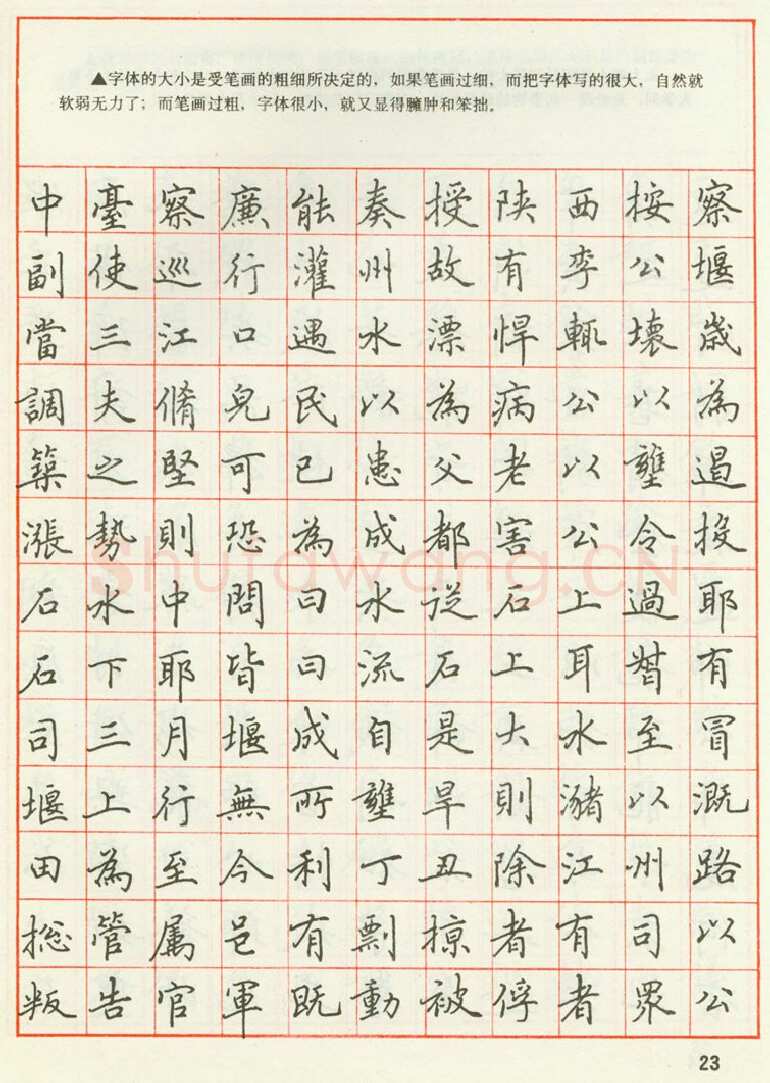 ▲字体的大小是受笔画的粗细所决定的，如果笔画过细，而把字体写的很大，自然就
软弱无力了；而笔画过粗，字体很小，就又显得臃肿和笨拙。
中臺察廉能奏授陕西按察
副使巡行灌州故有李公堰
當三江口遇水漂悍輒壞歲
調夫脩皃民以為病公以為
築之堅可已患父老以壅遏
漲勢則恐為成都害公令投
石水中問曰水從石上過耶
石下耶皆曰流石上耳督有
司三月堰成自是大水至冒
堰上行無所壅旱則瀦以溉
田為至今利丁丑除江州路
総管属邑有剽掠者有司以
叛告官軍既動被俘者眾公
Shufawang.CN
23